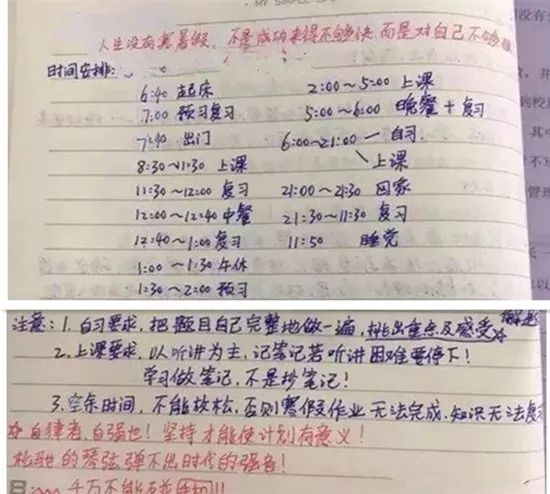 MY SIMPLE
人生没有寒暑假,不是成功来得不够快,而是对自己不够狠
时间安排:
6:40 起床
7:00 预习复习
7:40 出门
8:30~11:30 上课
11:30~12:00 复习
12:00~12:40 中餐
12:40~1:00 复习
1:00~1:30 午休
1:30~2:00 预习
2:00~5:00 上课
5:00~6:00 晚餐+复习
6:00~21:00 自习
上课
21:00~21:30 回家
21:30~11:30 复习
11:50 睡觉
注意:1. 自习要求,把题目自己完整地做一遍,挑出重点及感受
2. 上课要求,以听讲为主,记笔记若听讲困难要停下!
学习做笔记,不是抄笔记!
3. 空余时间,不能放松,否则寒假作业无法完成,知识无法复
☆自律者,自强也!坚持才能使计划有意义!
松弛的琴弦弹不出时代的强音!
千万不能